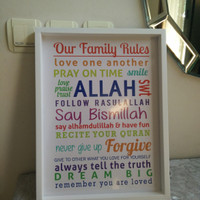 Our Family Rules
love one another
PRAY ON TIME smile
love praise trust ALLAH SWT
FOLLOW RASULALLAH
Say Bismillah
say alhamdulillah & have fun
RECITE YOUR QURAN
never give up Forgive
GIVE TO OTHER WHAT YOU LOVE FOR YOURSELF
always tell the truth
DREAM BIG
remember you are loved